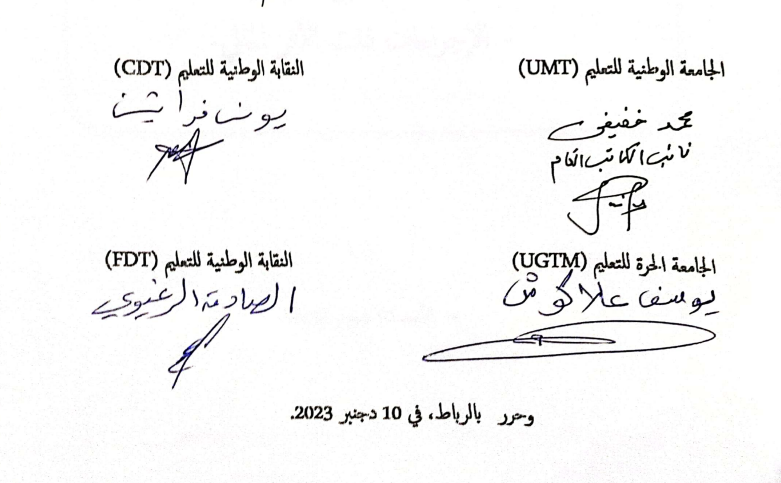 الجامعة الوطنية للتعليم (UMT)
محمد خفيفي
نائب الكاتب العام
النقابة الوطنية للتعليم (CDT)
يونس فراشين
الجامعة الحرة للتعليم (UGTM)
يوسف علاكوش
النقابة الوطنية للتعليم (FDT)
الصادق الرغيوي
وحرر بالرباط، في 10 دجنبر 2023.